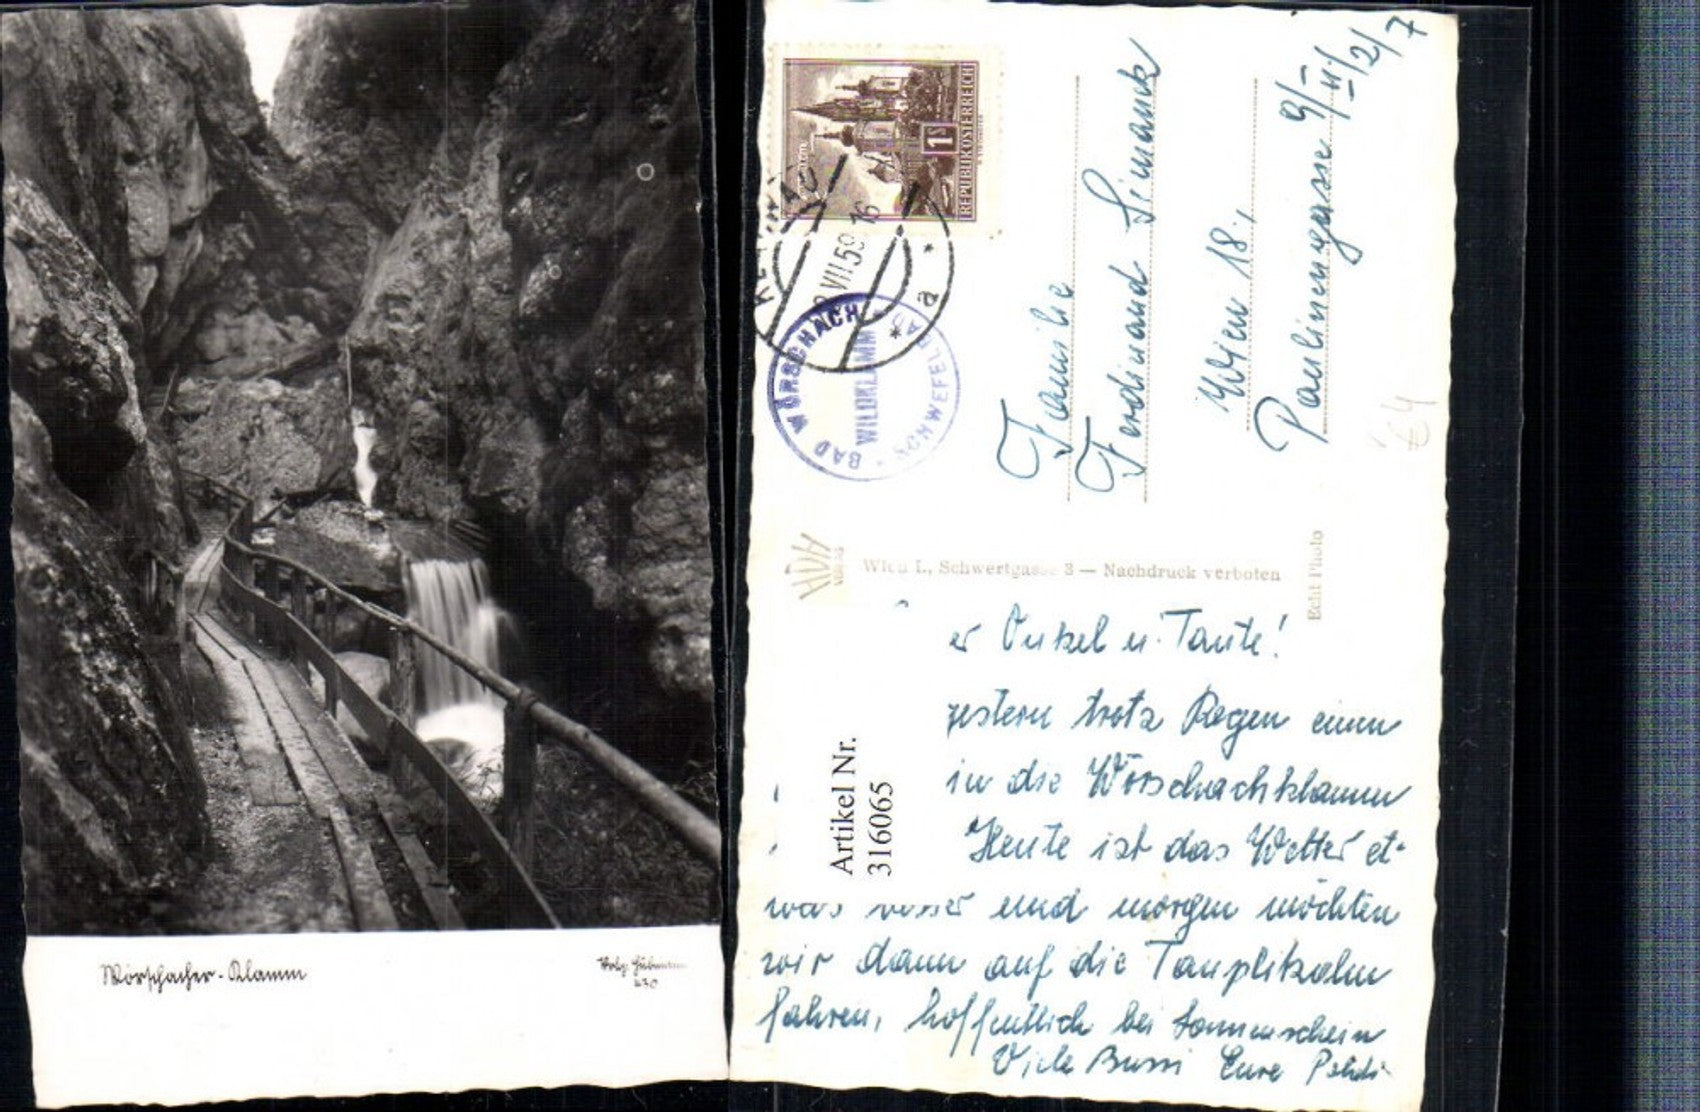 Wörschacher-Klamm
630
REPUBLIK ÖSTERREICH
1S
VII 59 16
a
BAD WÖRSCHACH
WILDKLAMM
SCHWEFELBAD
Familie
Ferdinand Simanek
Wien 18.,
Paulinengasse 9/II/2/7
Wien I., Schwertgasse 3 — Nachdruck verboten
Echt Photo
er Onkel u. Tante!
gestern trotz Regen einen
in die Wörschachklamm
Heute ist das Wetter et-
was besser und morgen möchten
wir dann auf die Tauplitzalm
fahren, hoffentlich bei Sonnenschein
Viele Bussi Eure
Artikel Nr.
316065